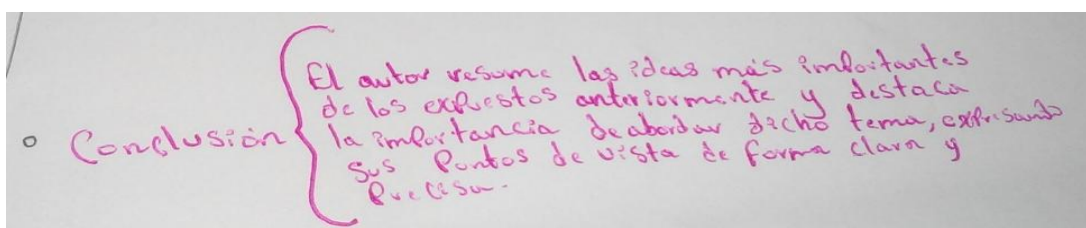 El autor resume las ideas más importantes
de los expuestos anteriormente y destaca
Conclusión la importancia de abordar dicho tema, expresando
sus puntos de vista de forma clara y
precisa.